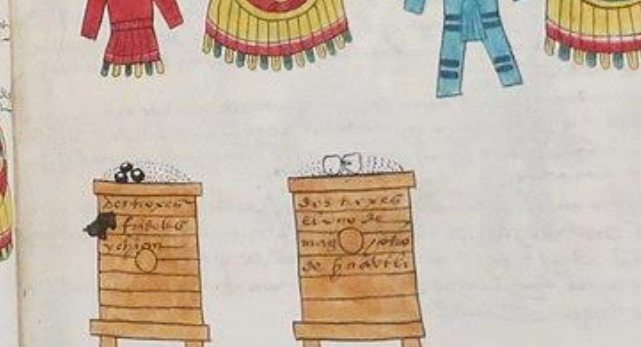 dos troxes
frisoles
y chian
dos troxes
el uno de
de guavtli